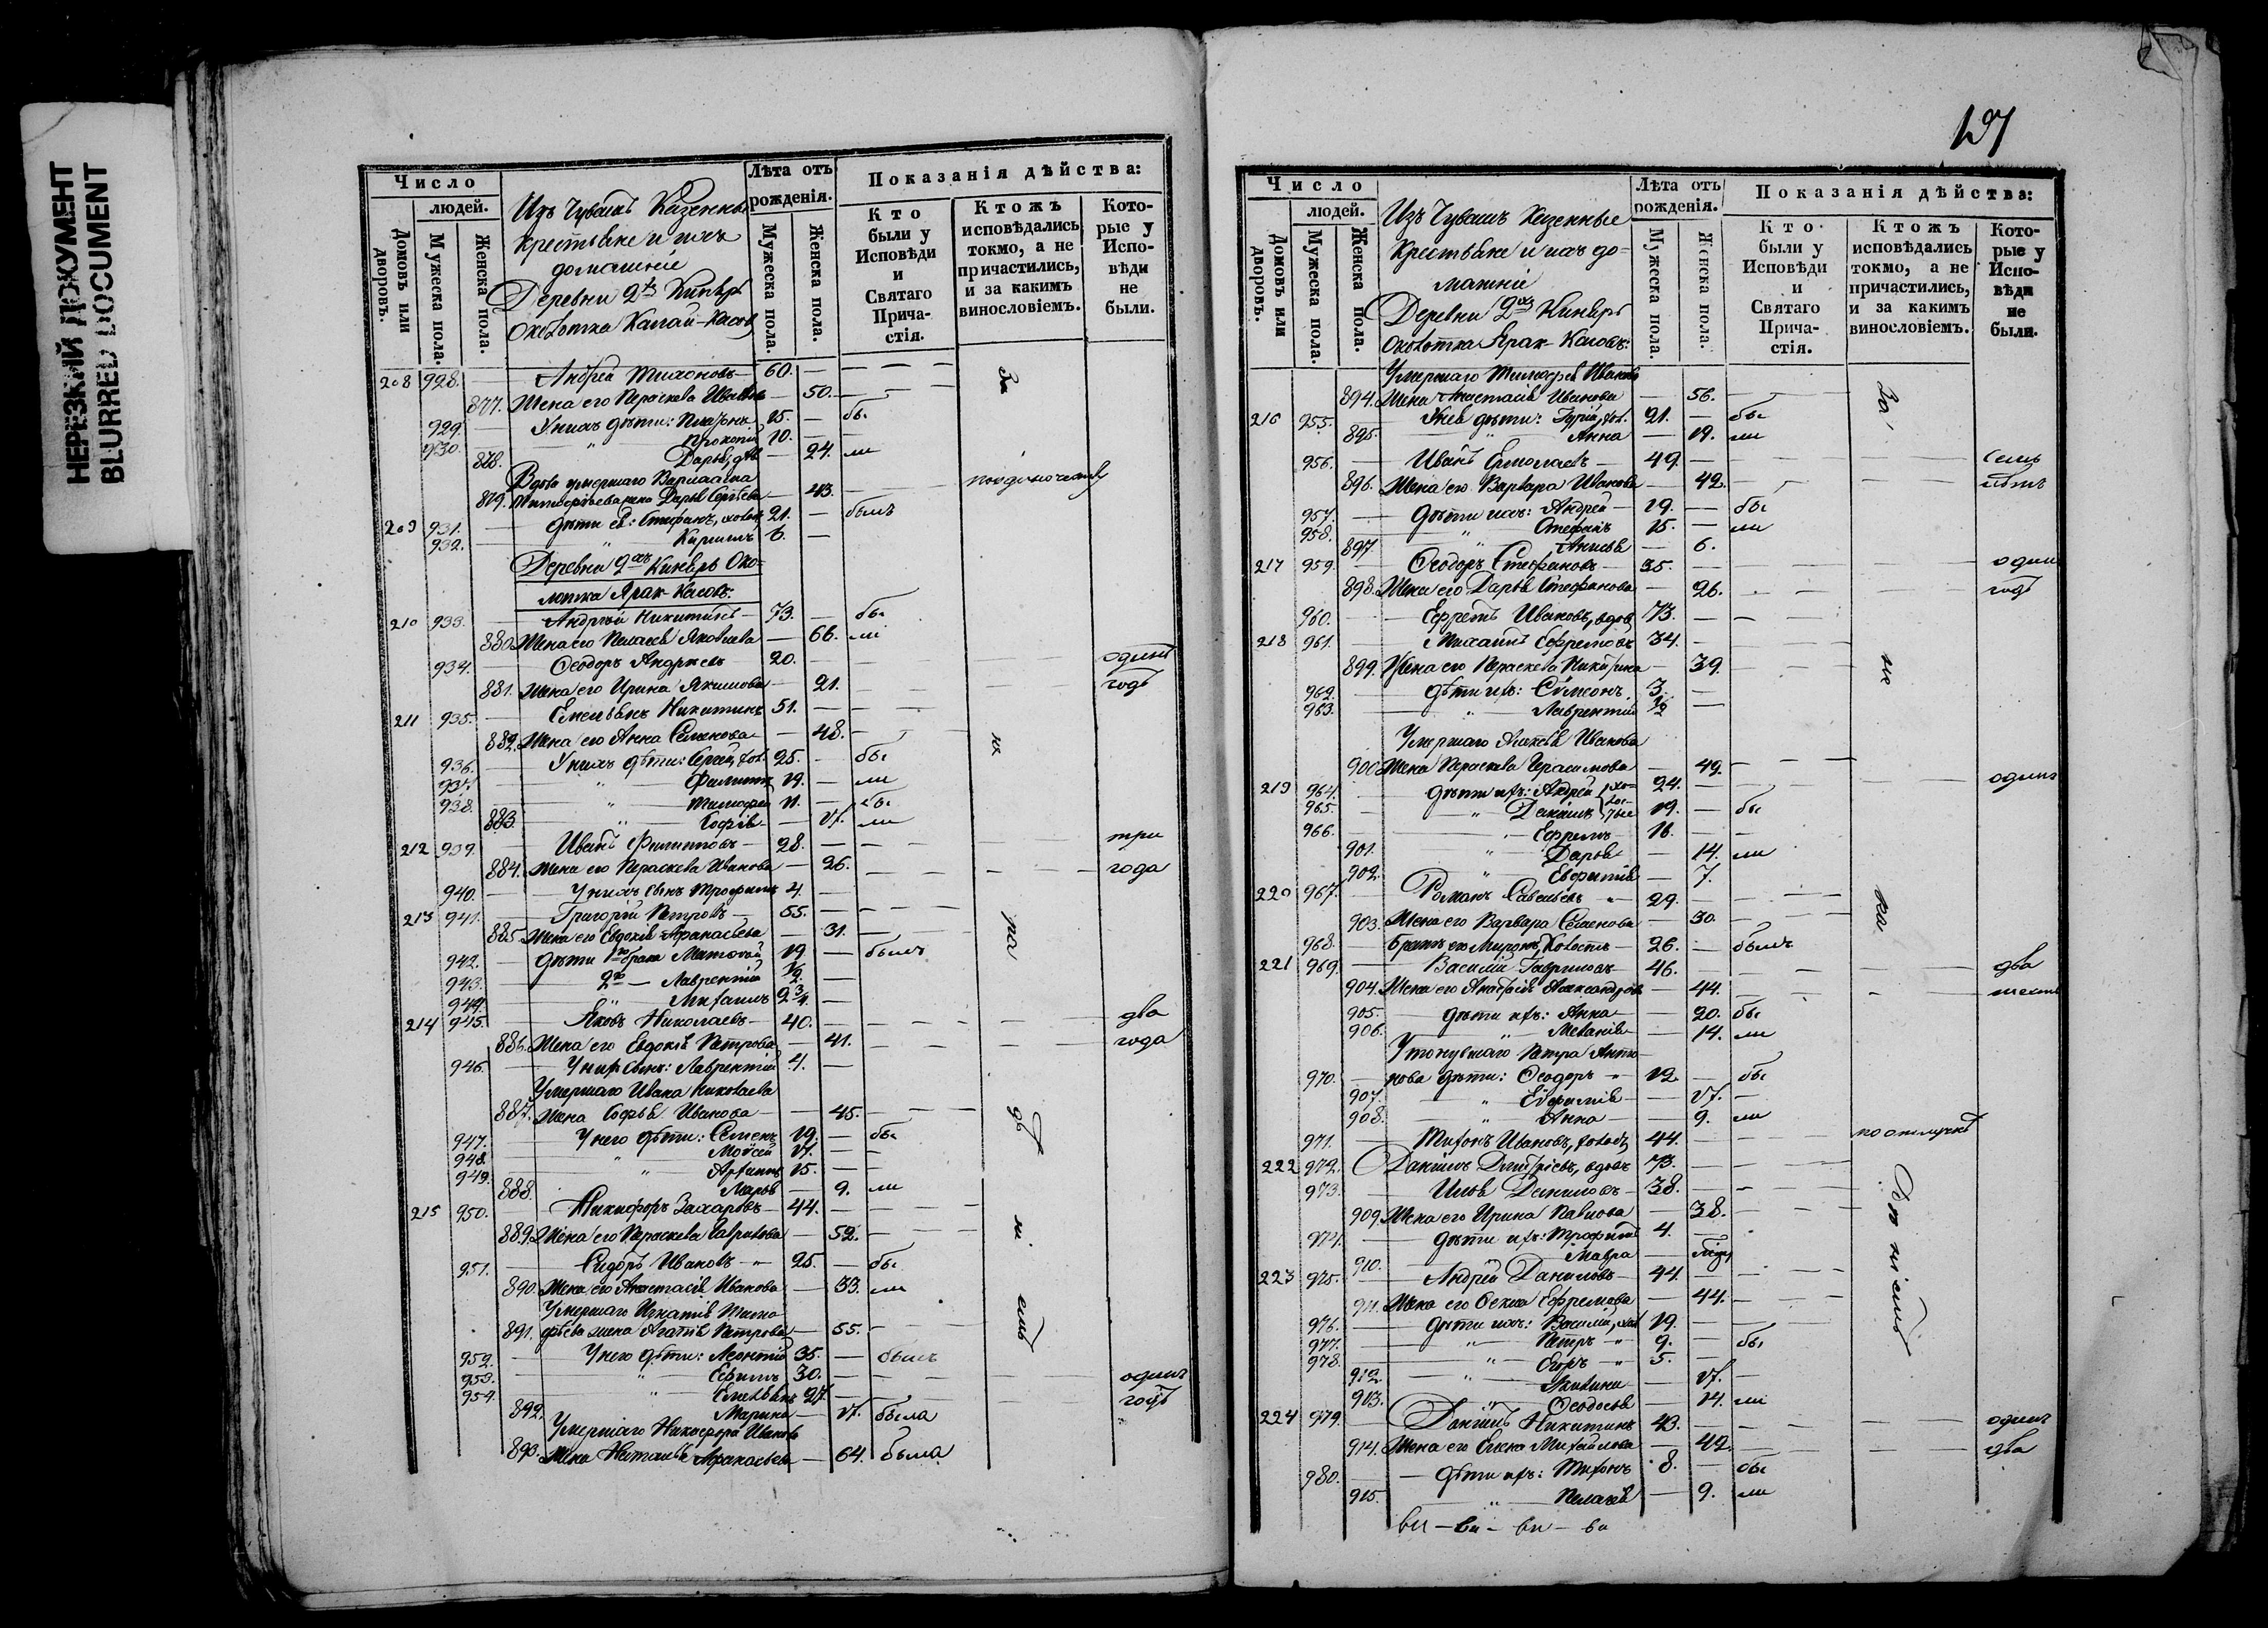 НЕРЕЗКИЙ ДОКУМЕНТ
BLURRED DOCUMENT
Число
людей.
Домовъ или дворовъ.
Мужеска пола.
Женска пола.
Изъ Чувашъ Казенные
крестьяне и ихъ
домашніе
Деревни 2хъ Киняръ
Околотка
Лѣта отъ рожденія.
Мужеска пола.
Женска пола.
Показанія дѣйства:
Кто были у Исповѣди и Святаго Прича-стія.
Ктожъ исповѣдались токмо, а не причастились, и за какимъ винословіемъ.
Кото-рые у Испо-вѣди не были.
208 928. Андрей Тихоновъ 60.
877. Жена его Параскева Иванова 50.
929. У нихъ дѣти: 15. бы
930. " Прокопій 10.
878. Дарья, 24. ли
Вдова умершаго
879. жена Дарья Сергѣева 43.
209 931. дѣти ея: Стефанъ, холос 21. былъ
932. " Кириллъ 6.
Деревни 2хъ Киняръ Око-
лотка Ярак-Касовъ:
210 933. Андрей Никитинъ 73. бы
880. Жена его Пелагея Яковлева 66. ли
934. Ѳеодоръ Андреевъ 20. одинъ
881. Жена его Ирина Якимова 21. годъ
211 935. Емельянъ Никитинъ 51.
882. Жена его Анна Семенова 48.
936. У нихъ дѣти: Сергей, хол. 25. бы
937. " Филиппъ 19. ли
938. " Тимофей 11. бы
883. " Софія 17. ли
212 939. Иванъ Филипповъ 28. три
884. Жена его Параскева Иванова 26. года
940. У нихъ сынъ Трофимъ 4.
213 941. Григорій Петровъ 55.
885. Жена его Евдокія Афанасьева 31.
942. дѣти 1го брака 19 былъ
943. 2го Лаврентій 1/2.
944. " Михаилъ 2 3/4.
214 945. Яковъ Николаевъ 40. два
886. Жена его Евдокія Петрова 41. года
946. У нихъ сынъ: Лаврентій 4.
Умершаго Ивана Николаева
887. Жена Софья Иванова 45.
947. У него дѣти: Семенъ 19. бы
948. " Мойсей 17.
949. " 15.
888. Марья 9. ли
215 950. Никифоръ Захаровъ 44.
889. Жена его Параскева Гаврилова 52.
951. Сидоръ Ивановъ 25. бы
890. Жена его Анастасія Иванова 33. ли
Умершаго Игнатія Тимо
891. фѣева жена Агапія Петрова 55.
952. У него дѣти: Леонтій 35. былъ
953. " Ефимъ 30. одинъ
954. " Емельянъ 27. годъ
892. Марина 17. была
Умершаго Никифора Иванов
893. Жена Наталья Афанасьева 64. была
Число
людей.
Домовъ или дворовъ.
Мужеска пола.
Женска пола.
Изъ Чувашъ Казенные
Крестьяне и ихъ до-
машніе
Деревни 2хъ Киняръ
Околотка Ярак-Касовъ:
Лѣта отъ рожденія.
Мужеска пола.
Женска пола.
Показанія дѣйства:
Кто были у Исповѣди и Святаго Прича-стія.
Ктожъ исповѣдались токмо, а не причастились, и за какимъ винословіемъ.
Кото-рые у Испо-вѣди не были.
Умершаго Тимофея Иванова
894. Жена Анастасія Иванова 56.
216 955. У нея дѣти: Гурій, хол. 21. бы
895. " Анна 19. ли
956. Иванъ Ермолаевъ 49. семь
896. Жена его Варвара Иванова 42. лѣтъ
957. Дѣти ихъ: Андрей 19. бы
958. " Стефанъ 15. ли
897. " 6.
217 959. Ѳеодоръ Стефановъ 35. одинъ
898. Жена его Дарья Стефанова 26. годъ
960. Ефремъ Ивановъ, вдов 73.
218 961. Михаилъ Ефремовъ 34.
899. Жена его Параскева 39.
962. дѣти ихъ: Симеонъ 3.
963. " Лаврентій 1/2
Умершаго Алексѣя Иванова
900. Жена Параскева Герасимова 49.
219 964. дѣти ихъ: Андрей 24. одинъ
965. " 19. бы
966. " Ефремъ 16.
901. " Дарья 14. ли
902. " Евфимія 7.
220 967. Романъ Савельевъ 29.
903. Жена его Варвара Семенова 30.
968. Братъ его Миронъ, холостъ 26. былъ
221 969. Василій Гавриловъ 46. два
904. Жена его Анастасія Александров 44.
905. дѣти ихъ: Анна 20. бы
906. " Меланія 14. ли
Утонувшаго Петра Анто-
970. нова дѣти: Ѳеодоръ 12. бы
907. " Евфимія 17.
908. " Анна 9. ли
971. Тихонъ Ивановъ, холост 44. по отлучкѣ
222 972. Даніилъ Дмитріевъ, вдовъ 73.
973. Илья Даниловъ 38.
909. Жена его Ирина Павлова 38.
974. дѣти ихъ: Трофимъ 4.
910. Мавра
223 975. Андрей Даниловъ 44.
911. Жена его Ефремова 44.
976. дѣти ихъ: Василій, хол 19.
977. " Петръ 9. бы
978. " Егоръ 5.
912. " 17.
913. " Ѳеодосья 14. ли
224 979. Даніилъ Никитинъ 43. одинъ
914. Жена его Елена Михайлова 42. два
980. дѣти ихъ: Тихонъ 8. бы
915. " Пелагея 9. ли